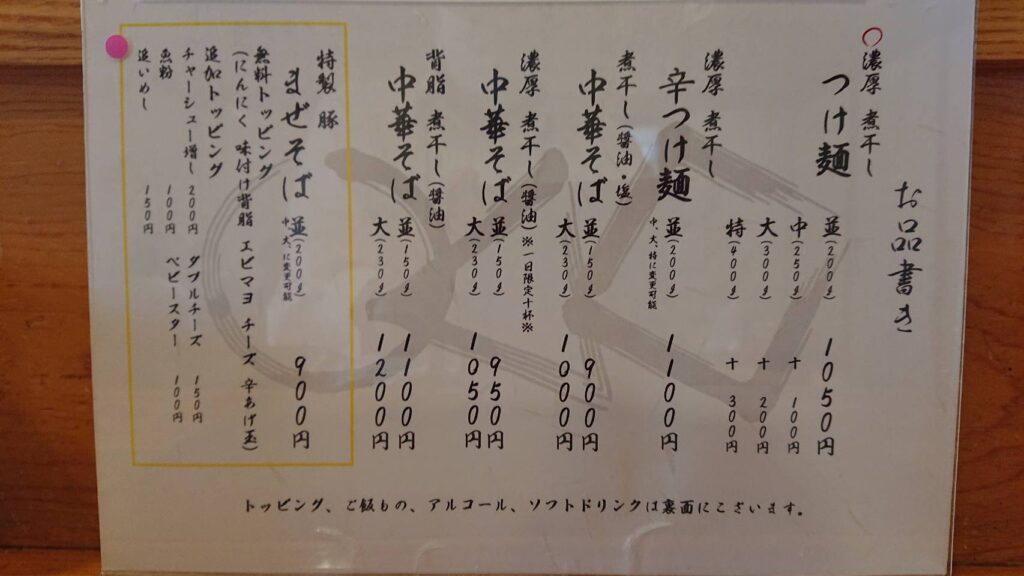 お品書き
濃厚 煮干し
つけ麺
並(200g) 1050円
中(250g) + 100円
大(300g) + 200円
特(400g) + 300円
濃厚 煮干し
辛つけ麺 並(200g) 1100円
中、大、特に変更可能
煮干し(醤油・塩)
中華そば 並(150g) 900円
大(230g) 1000円
濃厚 煮干し(醤油)※一日限定十杯※
中華そば 並(150g) 950円
大(230g) 1050円
背脂 煮干し(醤油)
中華そば 並(150g) 1100円
大(230g) 1200円
特製 豚
まぜそば 並(200g) 900円
中、大に変更可能
無料トッピング
(にんにく 味付け背脂 エビマヨ チーズ 辛あげ玉)
追加トッピング
チャーシュー増し 200円 ダブルチーズ 150円
魚粉 100円 ベビースター 100円
追いめし 150円
トッピング、ご飯もの、アルコール、ソフトドリンクは裏面にございます。